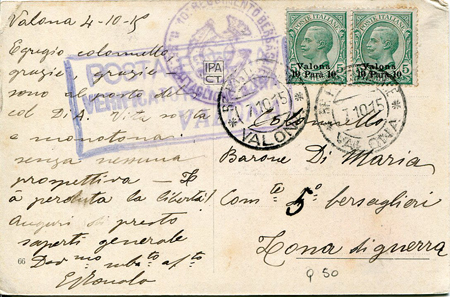 Valona 4-10-15
Egregio colonnello
grazie, grazie
sono al posto del
col. Di A. Vita sola
monotona!
senza nessuna
prospettiva — H
à perduta la libertà!
Auguri di presto
saperti generale
Dev mo
10° REGIMENTO BERS
POSTA
VERIFICATO
VA
IPA
CT
POSTE ITALIANE
Valona
10 Para 10
5
POSTE ITALIANE
Valona
10 Para 10
5
10.15
VALONA
10.15
VALONA
Colonnello
Barone Di Maria
Com te 5° bersaglieri
Zona di guerra
66
Q 50